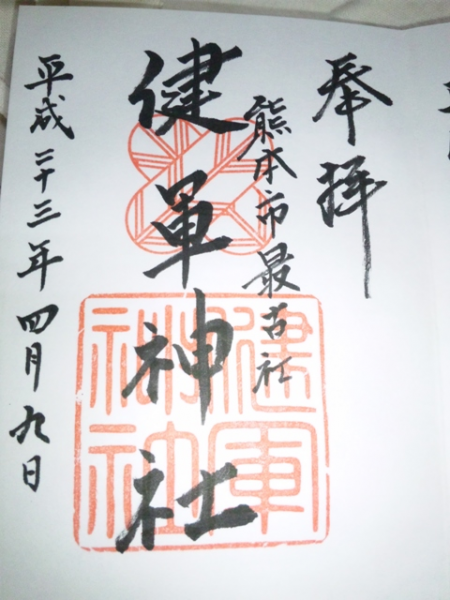 奉拝
熊本市最古社
健軍神社
健軍神社
平成二十三年四月九日